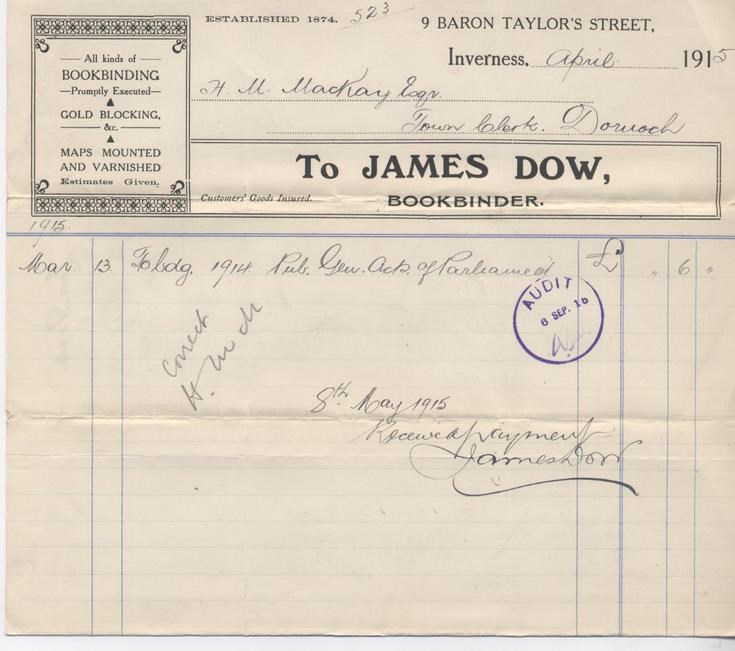 ESTABLISHED 1874.
523
9 BARON TAYLOR'S STREET,
Inverness, April 1915
H. M. Mackay Esqr.
Town Clerk. Dornoch
All kinds of
BOOKBINDING
Promptly Executed
GOLD BLOCKING,
&c.
MAPS MOUNTED
AND VARNISHED
Estimates Given.
To JAMES DOW,
Customers' Goods Insured.
BOOKBINDER.
1915.
Mar 13 To bdg. 1914 Pub. Gen. Acts. of Parliament £ " 6 "
AUDIT
6 SEP. 16
Correct
H. M. M
8th May 1915
Received payment
James Dow